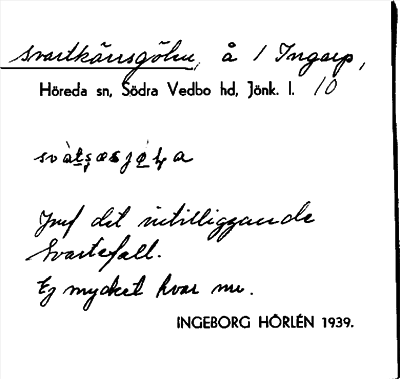 Svartkärrsgölen, å 1 Ingarp,
Höreda sn, Södra Vedbo hd, Jönk. l. 10
Jmf det intilliggande
Svartefall.
Ej mycket kvar nu.
INGEBORG HÖRLÉN 1939.